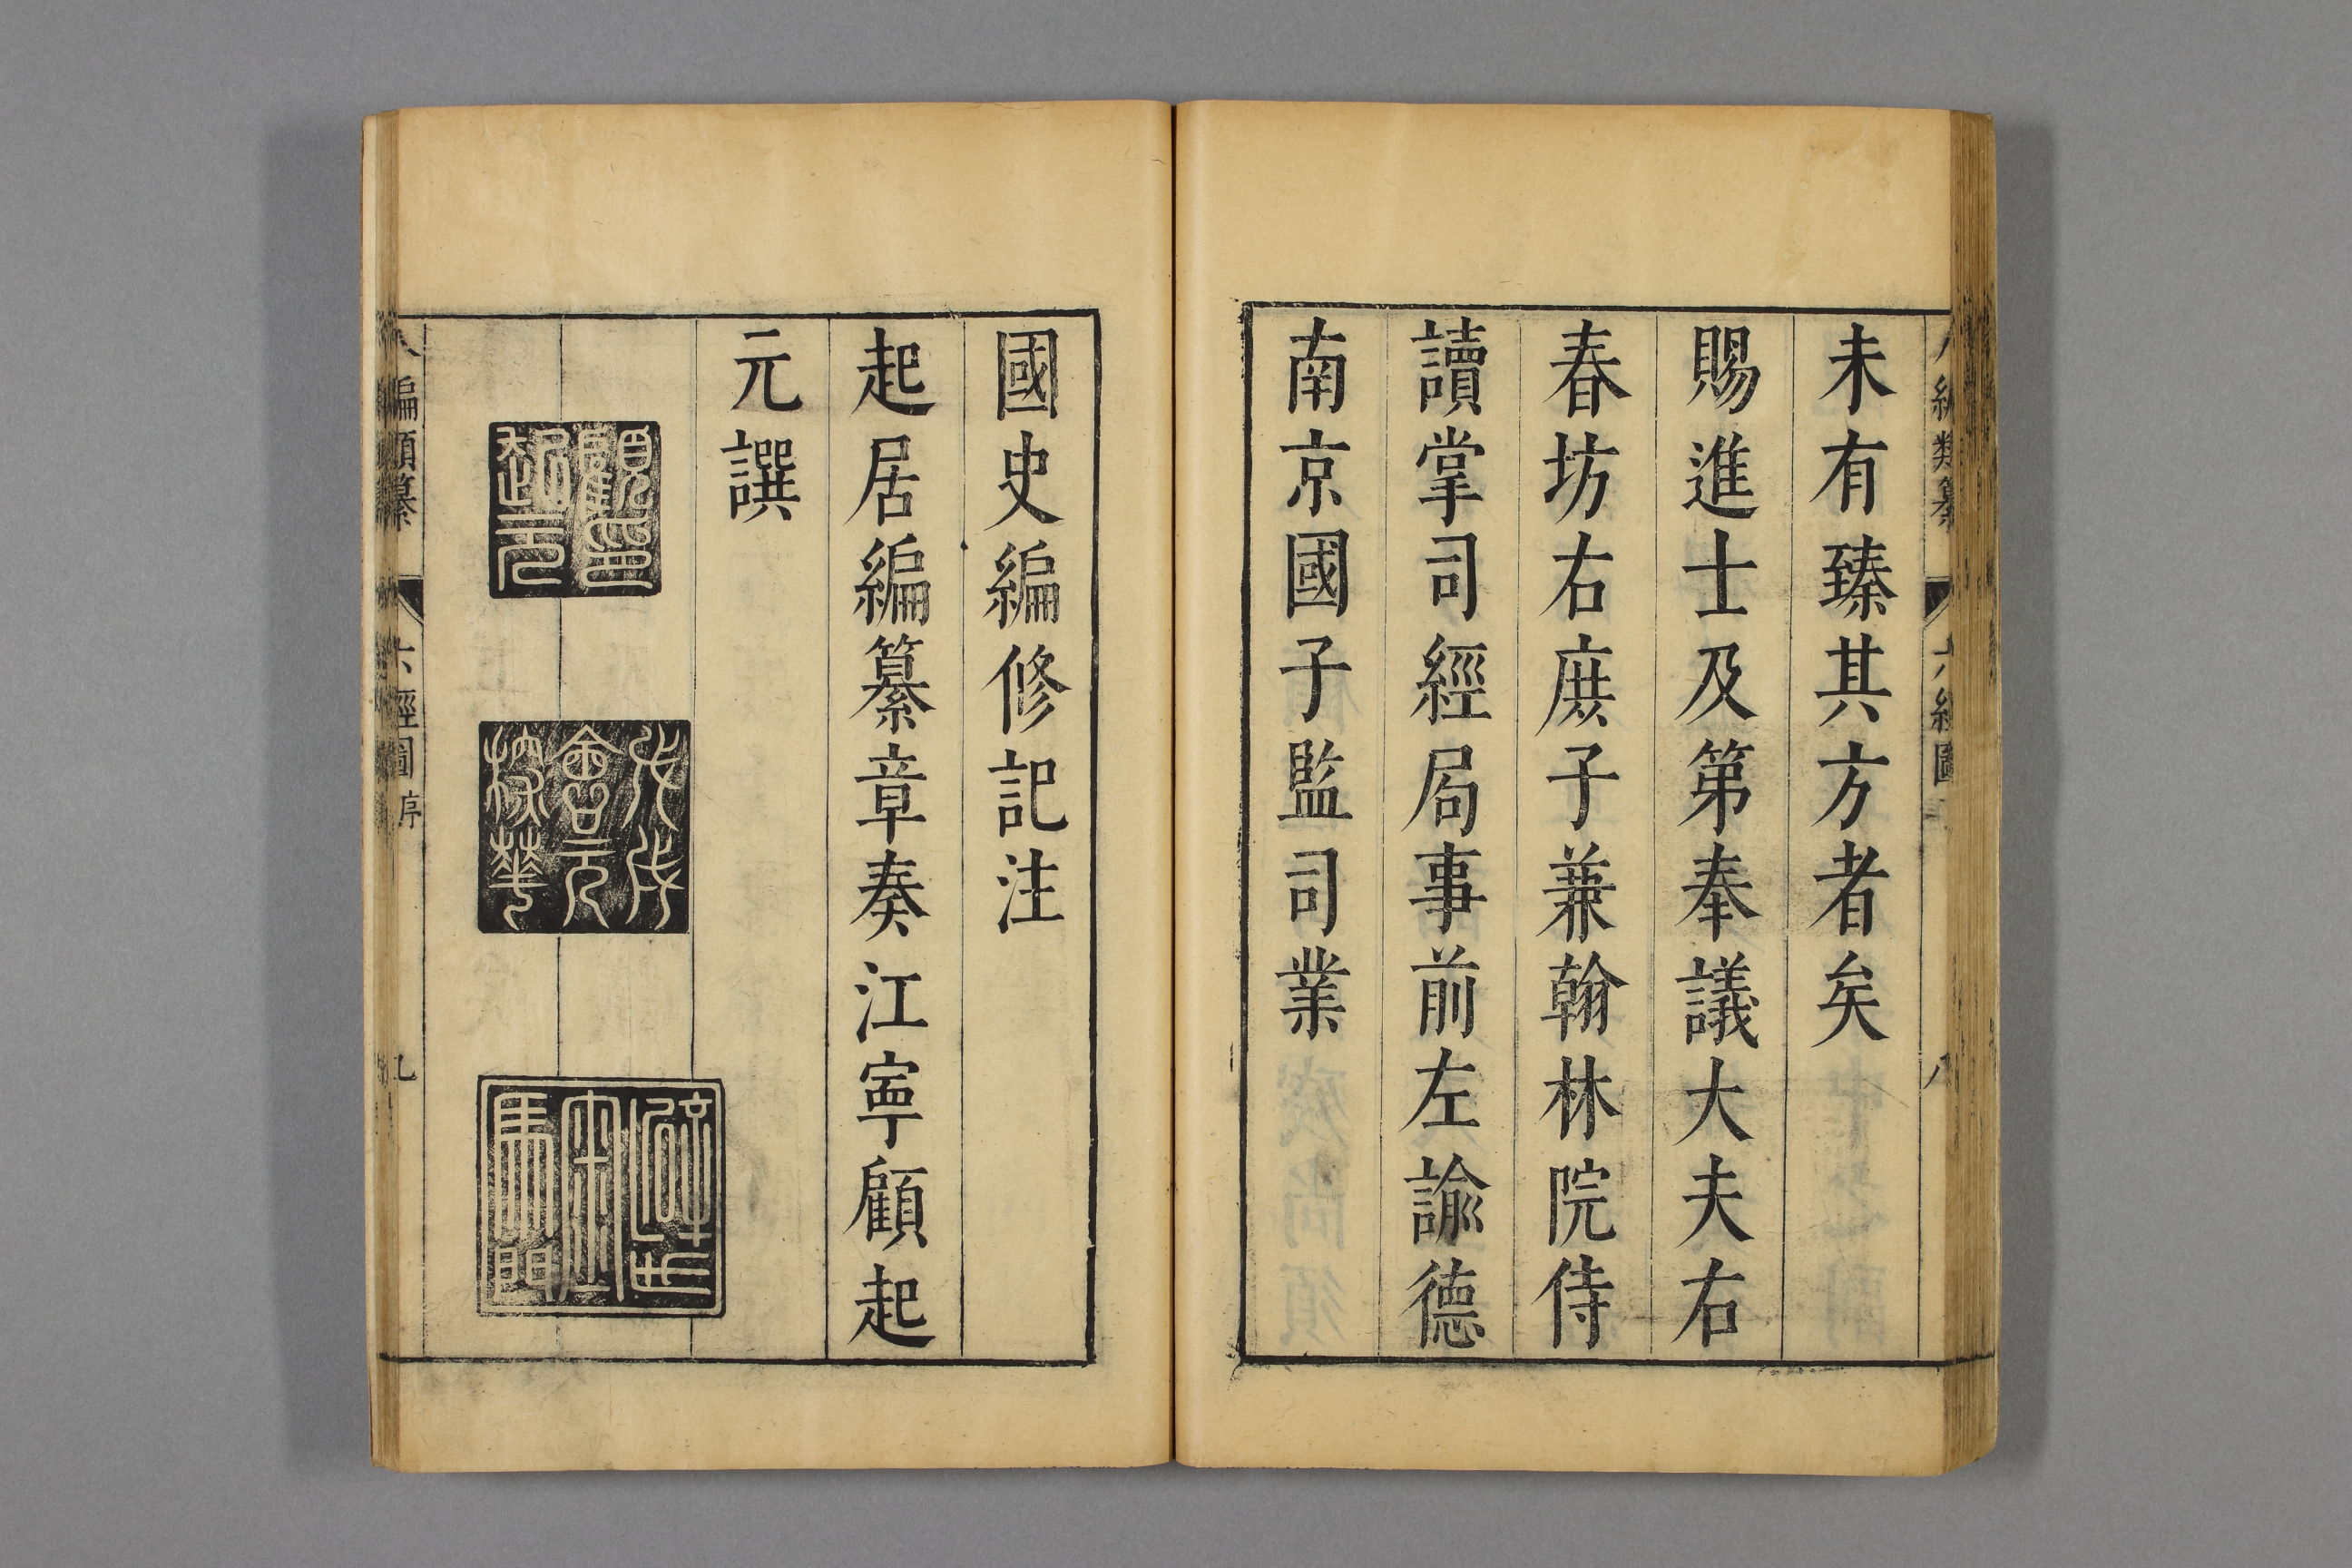 未有臻其方者矣
賜進士及第奉議大夫右
春坊右庶子兼翰林院侍
讀掌司經局事前左諭德
南京國子監司業
國史編修記注
起居編纂章奏江寧顧起
元譔
顧起元印
戊戌會元
八編類纂 六經圖序 九